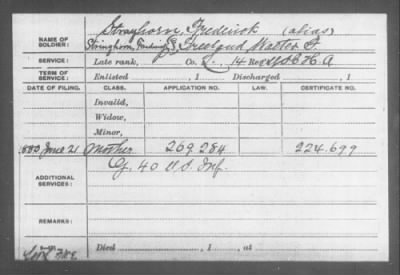 Strayhorn, Frederick (alias)
NAME OF SOLDIER: Freeland, Walter F.
SERVICE: Late rank, Co. 14 Reg't U.S.C.H.A
TERM OF SERVICE: Enlisted , 1 Discharged , 1
DATE OF FILING. CLASS. APPLICATION NO. LAW. CERTIFICATE NO.
Invalid,
Widow,
Minor,
1880 June 21 Mother 269.284 224.699
G, 40 U.S. Inf.
ADDITIONAL SERVICES:
REMARKS:
Died , 1 , at